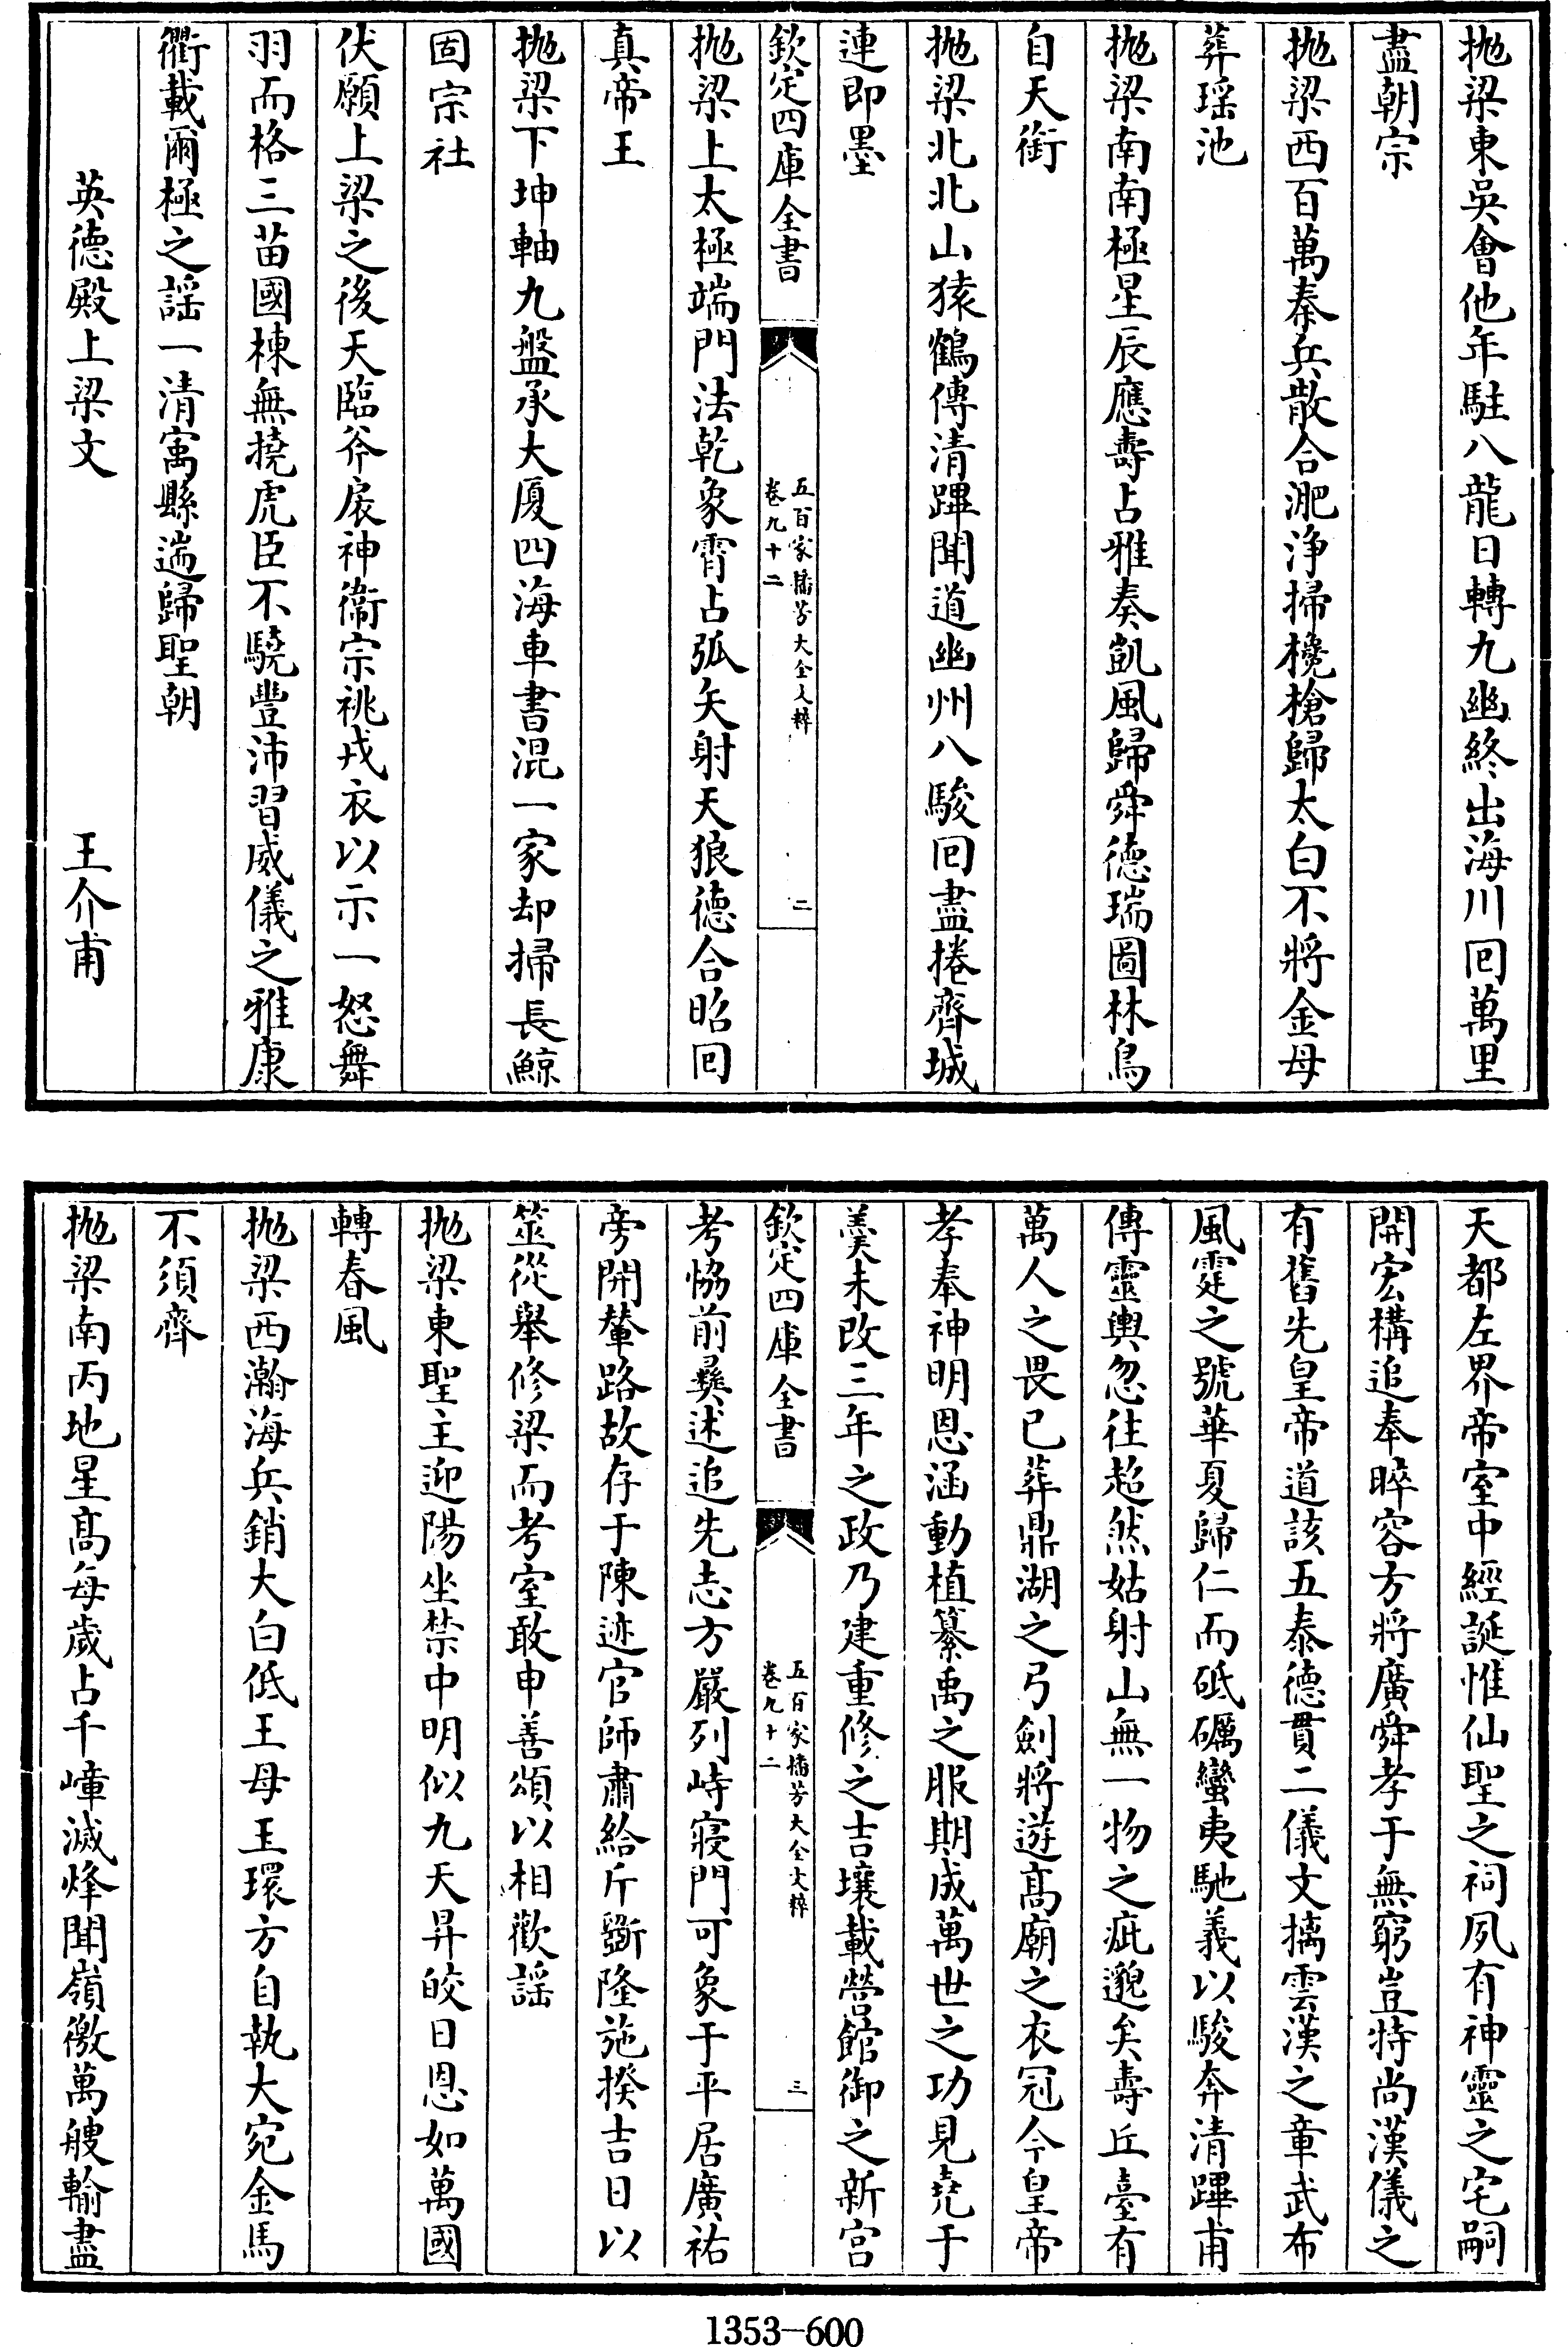 抛梁東吳會他年駐八龍日轉九幽終出海川囘萬里
盡朝宗
抛梁西百萬秦兵散合淝淨掃欃槍歸太白不將金母
葬瑶池
抛梁南南極星辰應壽占雅奏凱風歸舜德瑞圖林鳥
自天銜
抛梁北北山猿鶴傳清蹕聞道幽州八駿囘盡捲齊城
連即墨
欽定四庫全書
五百家播芳大全文粹
卷九十二
二
抛梁上太極端門法乾象霄占弧矢射天狼德合昭囘
真帝王
抛梁下坤軸九盤承大厦四海車書混一家却掃長鯨
固宗社
伏願上梁之後天臨斧扆神衞宗祧戎衣以示一怒舞
羽而格三苗國棟無撓虎臣不驍豐沛習威儀之雅康
衢載爾極之謡一清寓縣遄歸聖朝
英德殿上梁文
王介甫
天都左界帝室中經誕惟仙聖之祠夙有神靈之宅嗣
開宏構追奉晬容方將廣舜孝于無窮豈特尚漢儀之
有舊先皇帝道該五泰德貫二儀文摛雲漢之章武布
風霆之號華夏歸仁而砥礪蠻夷馳義以駿奔清蹕甫
傳靈輿忽往超然姑射山無一物之疵邈矣壽丘臺有
萬人之畏已葬鼎湖之弓劍將遊髙廟之衣冠今皇帝
孝奉神明恩涵動植纂禹之服期成萬世之功見堯于
羮未改三年之政乃建重修之吉壤載營館御之新宫
欽定四庫全書
五百家播芳大全文粹
卷九十二
三
考協前彛述追先志方嚴列峙寢門可象于平居廣祐
旁開輦路故存于陳迹官師肅給斤斵隆施揆吉日以
筮從舉修梁而考室敢申善頌以相歡謡
抛梁東聖主迎陽坐禁中明似九天昇皎日恩如萬國
轉春風
抛梁西瀚海兵銷大白低王母玉環方自執大宛金馬
不須齊
抛梁南丙地星髙每歲占千嶂滅烽聞嶺徼萬艘輸盡
1353-600